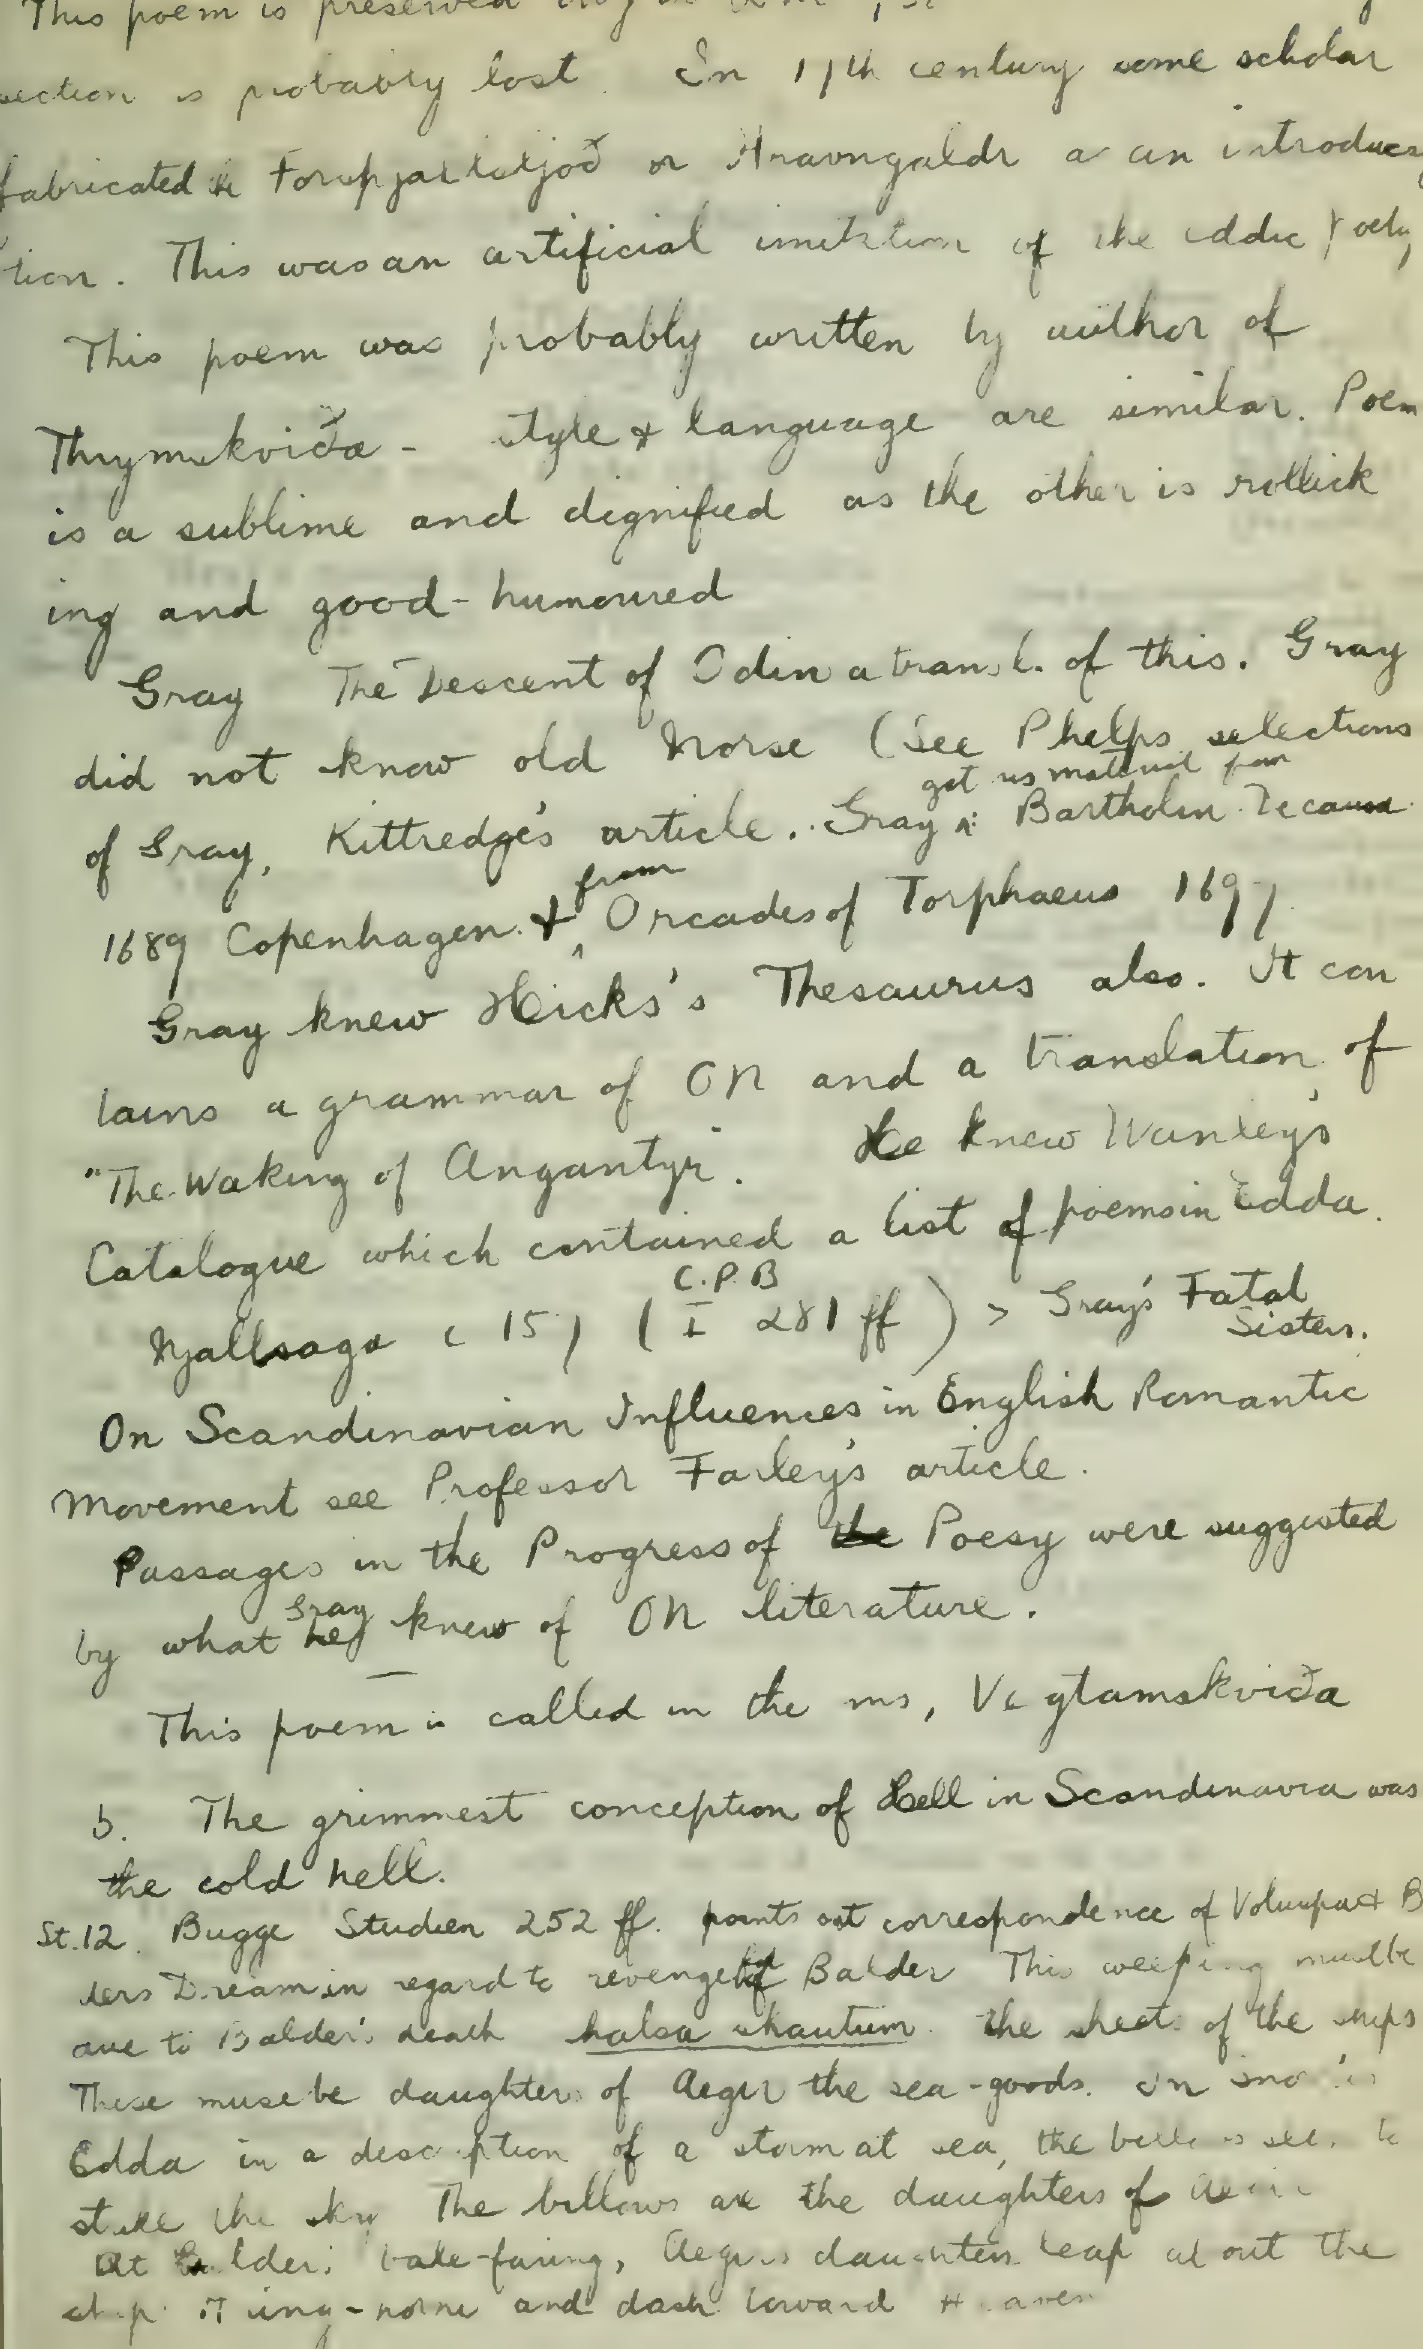 This poem is preserved
section is probably lost. In 17th century some scholar
fabricated Forspjallsljoð or Hravngaldr as an introduc
tion. This was an artificial imitation of the Eddic Poetry
This poem was probably written by author of
Thrymskviða - style & language are similar. Poem
is a sublime and dignified as the other is rollick
ing and good-humoured
Gray The Descent of Odin a transl. of this. Gray
did not know old Norse (See Phelps selections
got his material from
of Gray, Kittredge's article. Gray Bartholin
from
1689 Copenhagen & Orcades of Torphaeus 1697
Gray knew Hicks's Thesaurus also. It con
tains a grammar of ON and a translation of
"The Waking of Angantyr". He knew Wanley's
Catalogue which contained a list of poems in Edda.
C.P.B
Njallsaga c 157 (I 281 ff) > Gray's Fatal
Sisters.
On Scandinavian Influences in English Romantic
Movement see Professor Farley's article.
Passages in the Progress of the Poesy were suggested
Gray
by what he knew of ON literature.
This poem is called in the ms, Vegtamskviða
The grimmest conception of Hell in Scandinavia was
the cold hell.
St.12. Bugge Studien 252 ff. points out correspondence of Voluspa & B
ders Dream in regard to revenge of Balder This weeping must be
due to Balder's death halsa skautum. the sheets of the ships
These must be daughters of Aegir the sea-goods. In
Edda in a description of a storm at sea, the billows
strike the sky The billows are the daughters of Aegir
At Balder's bale-faring, Aegirs daughters leap about the
ship and dash toward Heaven